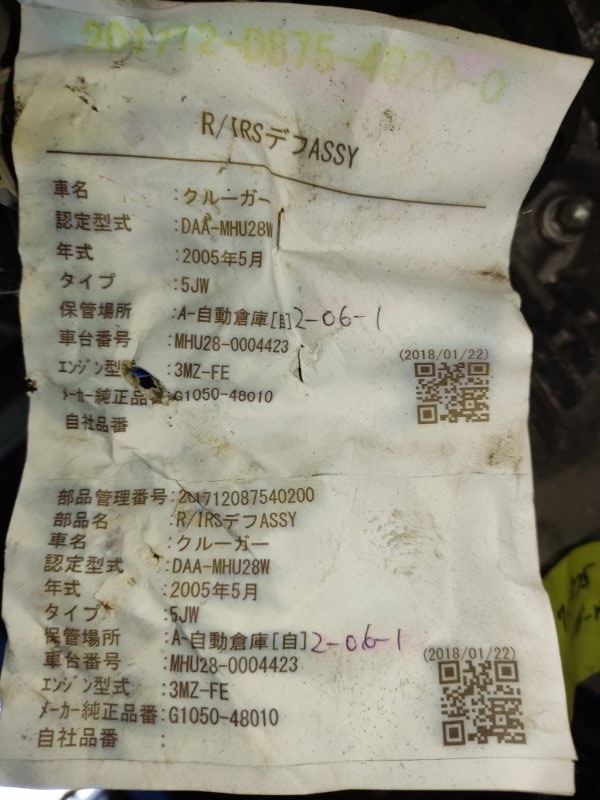 201712-0875-4020-0
R/IRSデフASSY
車名 :クルーガー
認定型式 :DAA-MHU28W
年式 :2005年5月
タイプ :5JW
保管場所 :A-自動倉庫[自]2-06-1
車台番号 :MHU28-0004423
エンジン型 :3MZ-FE
(2018/01/22)
メーカー純正品番:G1050-48010
自社品番
部品管理番号:201712087540200
部品名 :R/IRSデフASSY
車名 :クルーガー
認定型式 :DAA-MHU28W
年式 :2005年5月
タイプ :5JW
保管場所 :A-自動倉庫[自]2-06-1
車台番号 :MHU28-0004423
(2018/01/22)
エンジン型式 :3MZ-FE
メーカー純正品番:G1050-48010
自社品番 :